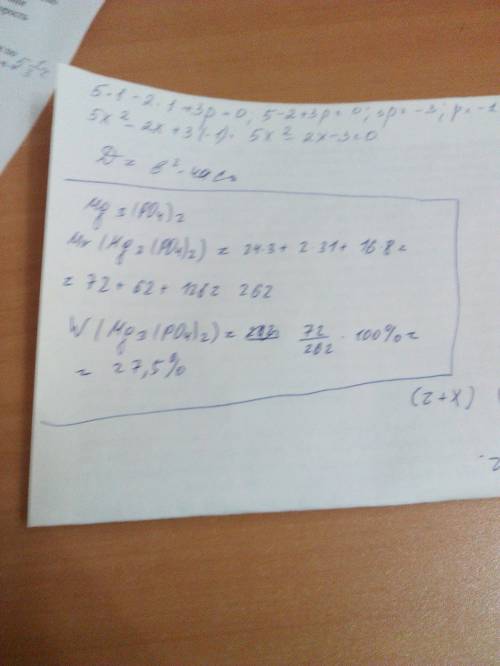 5·1-2·1+3p=0; 5-2+3p=0; 3p=-3; p=-1
5x² - 2x + 3(-1) = 5x² - 2x-3=0
D = b²-4ac=
Mg3(PO4)2
Mr(Mg3(PO4)2) = 24·3 + 2·31 + 16·8=
= 72 + 62 + 128= 262
W(Mg3(PO4)2)= 72/262 · 100%=
= 27,5%
(2+x)